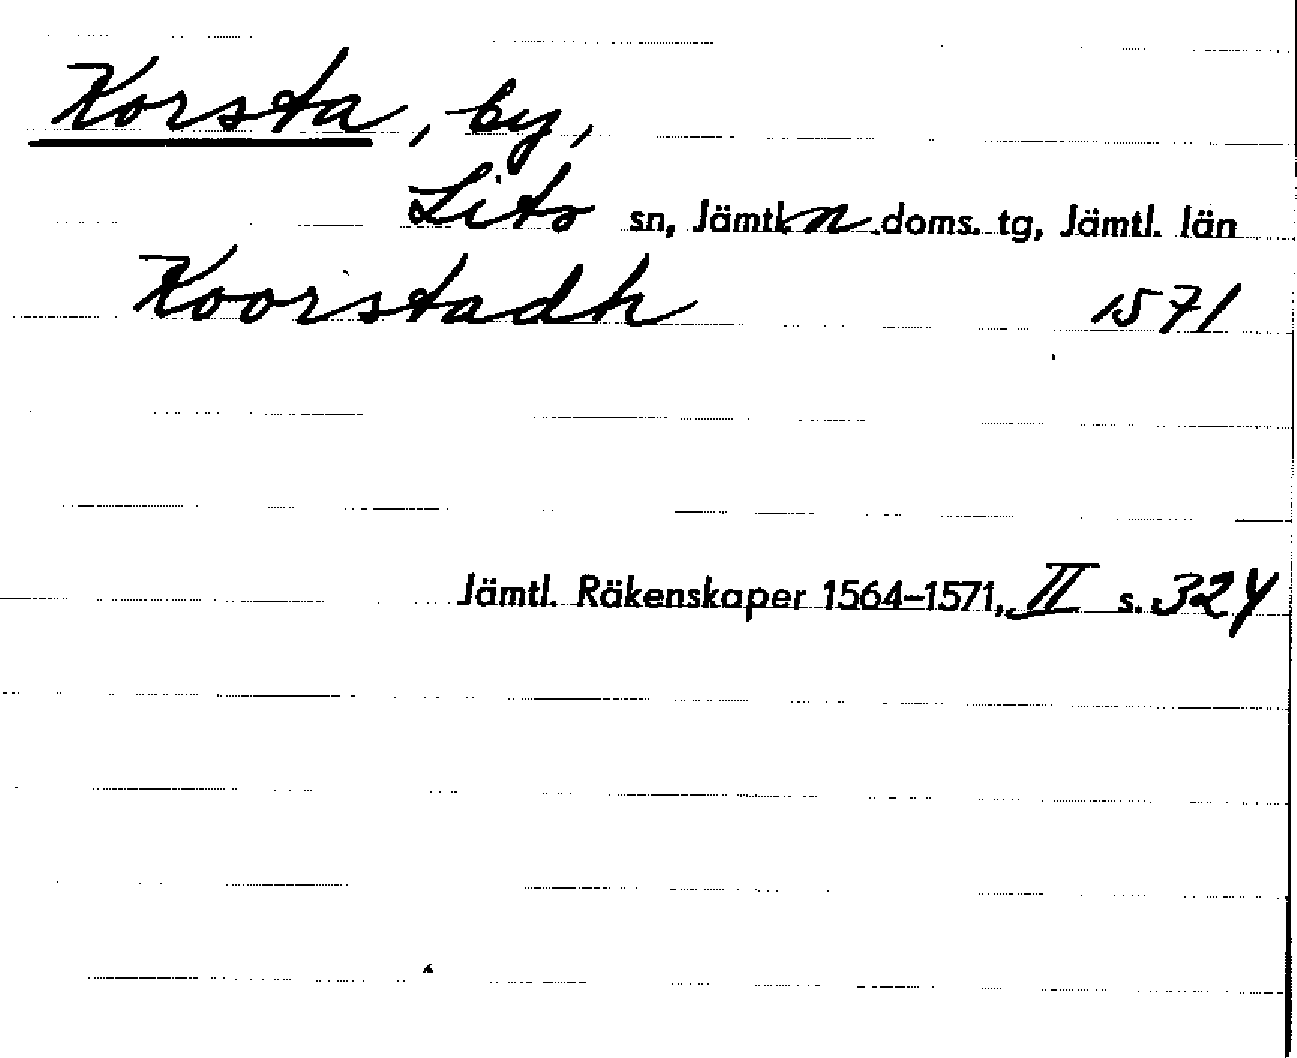 Korsta, by,
Lits sn, Jämtl. n. doms. tg, Jämtl. län
Koorstadh 1571
Jämtl. Räkenskaper 1564–1571, II s. 324